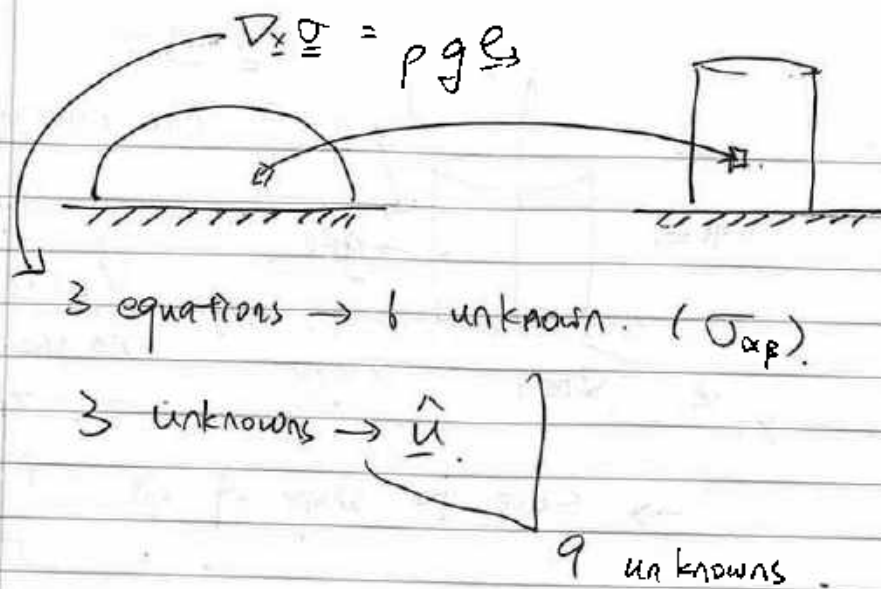 ∇x σ = ρ g e
3 equations → 6 unknown. (σαβ).
3 unknowns → û.
9 unknowns.